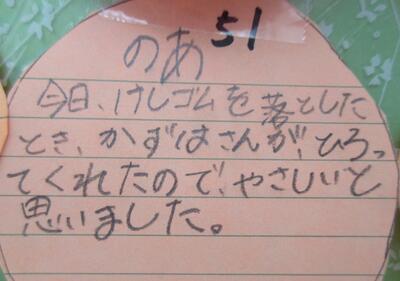 51
のあ
今日、けしゴムを落とした
とき、かずはさんが、ひろっ
てくれたので、やさしいと
思いました。